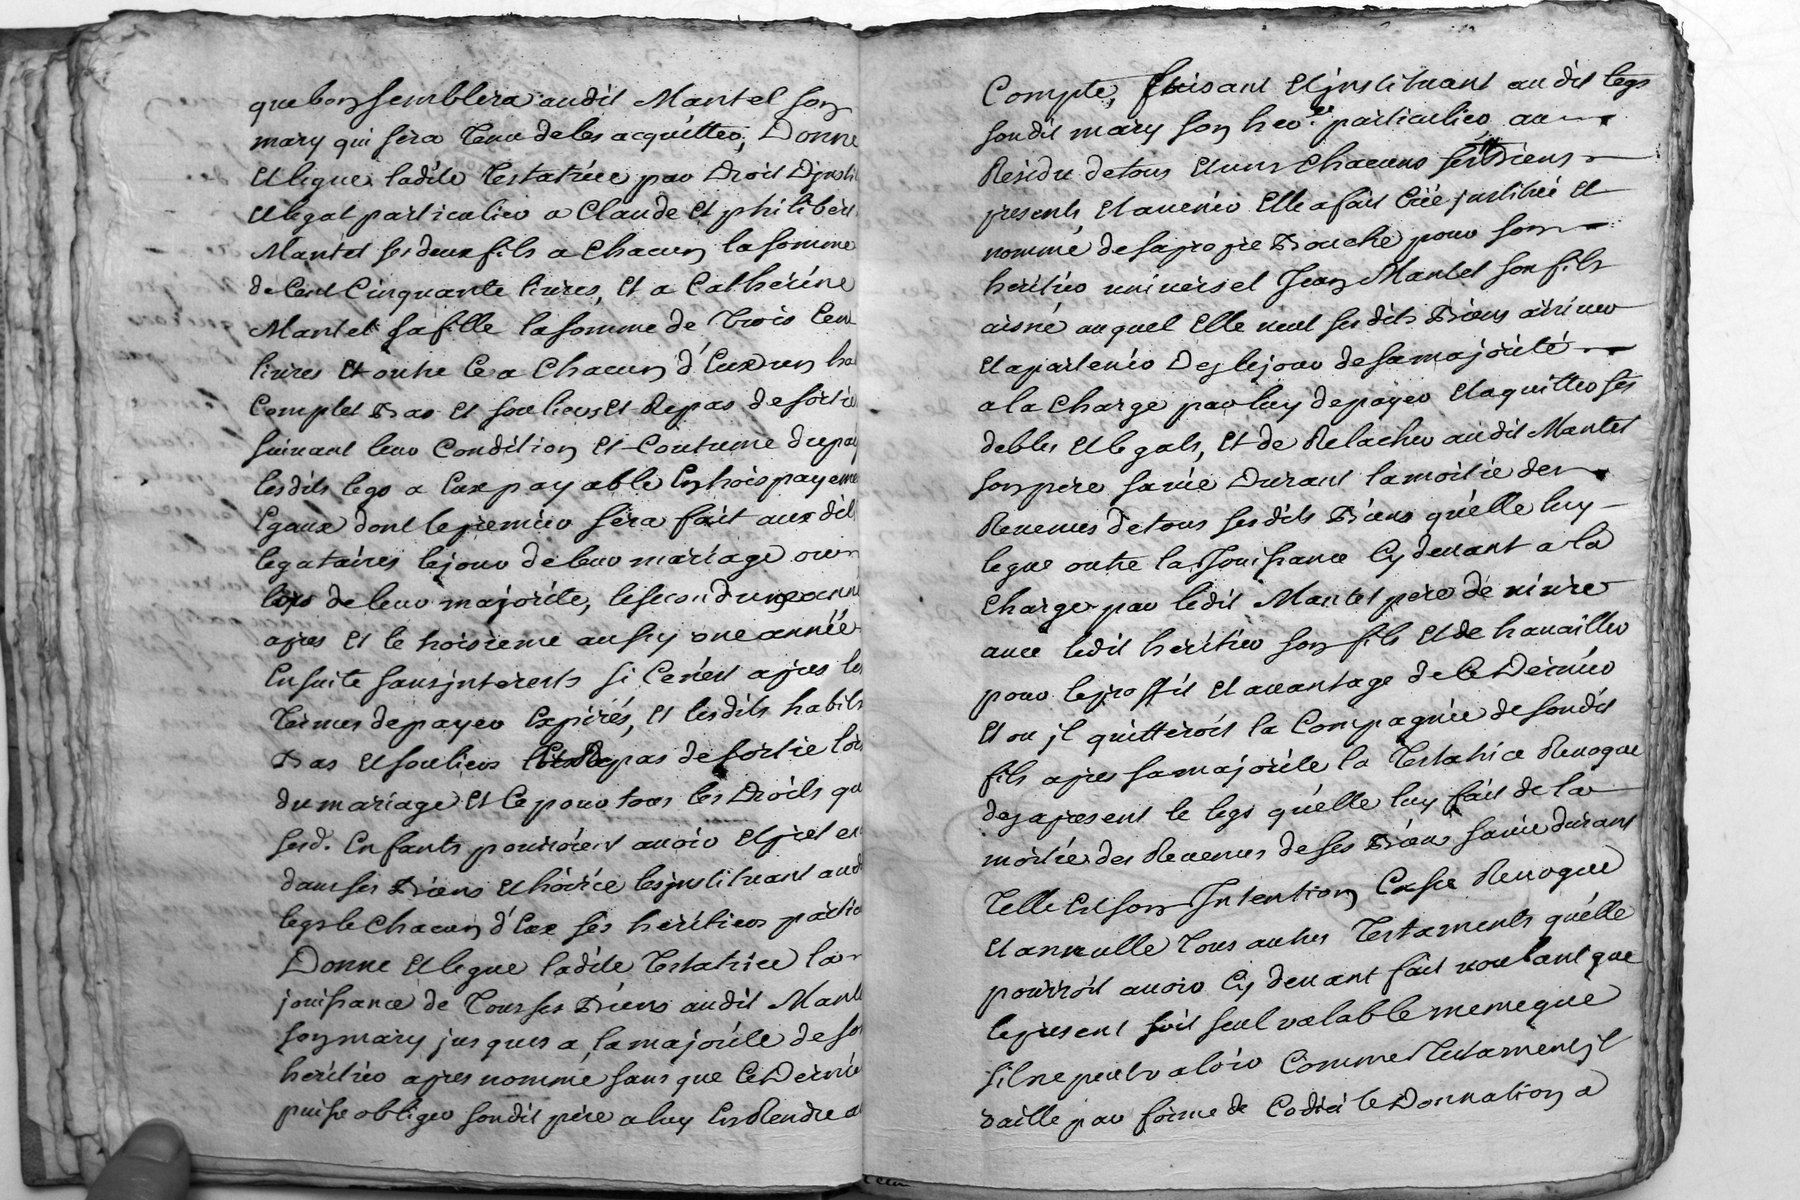 que bon semblera audit Mantel son
mary qui sera tenu de les acquitter, Donne
et legue ladite testatrice par droit d'insti
et legat particulier a Claude et philibert
Mantel ses deux fils a chacun la somme
de cent cinquante livres, et a Catherine
Mantel sa fille la somme de trois cent
livres et outre ce a chacun d'eux un ha
complet bas et souliers et repas de sortie
suivant leur condition et coutume du pay
lesdits legs a eux payable en trois payeme
egaux dont le premier sera fait aux dit
legataires le jour de leur mariage ou
lors de leur majorité, le second une anné
apres et le troisieme aussy une année
ensuite sans interests si ce n'est apres les
termes de payer expirés, et lesdits habits
bas et souliers et repas de sortie lors
du mariage et ce pour tous les droits qu
sesd. enfants pourroient avoir et pret en
dans ses biens et hoirie les instituant aud
legs le chacun d'eux ses heritiers partic
Donne et legue ladite testatrice la
jouissance de tous ses biens audit Mantel
son mary jusques a la majorité de son
heritier apres nommé sans que ce dernie
puisse obliger sondit pere a luy en rendre a
Compte, faisant et instituant audit legs
sondit mary son her.er particulier au
Residu de tous et uns chacuns ses biens
presents et avenir elle a fait créé institué et
nommé de sa propre bouche pour son
heritier universel Jean Mantel son fils
aisné auquel elle veut sesdits biens arriver
et apartenir des le jour de sa majorité
a la charge par luy de payer et aquitter ses
debtes et legats, et de relacher audit Mantel
son pere sa vie durant la moitié des
Revenus de tous sesdits biens qu'elle luy
legue outre la jouissance cy devant a la
charge par ledit Mantel pere de vivre
avec ledit heritier son fils et de travailler
pour le proffit et avantage de ce dernier
et ou jl quitteroit la compagnie de sondit
fils apres sa majorité la testatrice revoque
des apresent le legs qu'elle luy fait de la
moitié des revenus de ses biens sa vie durant
telle est son intention casse revoque
et annulle tous autres testaments qu'elle
pourroit avoir cy devant fait voulant que
le present soit seul valable meme que
s'il ne peut valoir comme testament jl
vaille par forme de codicile donnation a